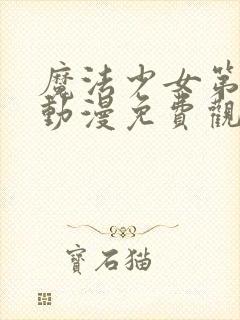 魔法少女第
動漫免費觀
寶石猫